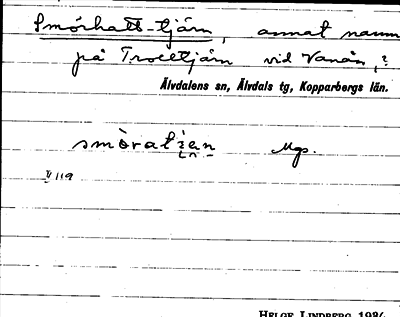 Smörhatt-tjärn, annat namn
på Trolltjärn vid Vanån, ?
Älvdalens sn, Älvdals tg, Kopparbergs län.
smòrat Mgs.
V 119
HELGE LINDBERG 1934